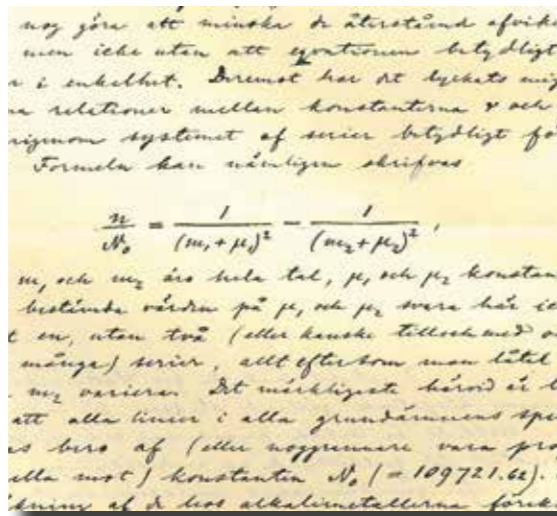 nog göra att minska de återstående afvike
men icke utan att eqvationen betydligt
i enkelhet. Deremot har det lyckats mig
relationer mellan konstanterna r och
rigenom systemet af serier betydligt fö
Formeln kan nämligen skrifvas
n/N₀ = 1/(m₁ + μ₁)² − 1/(m₂ + μ₂)² ,
m₁ och m₂ äro hela tal, μ₁ och μ₂ konstan
bestämda värden på μ₁ och μ₂ svara här ic
t en, utan två (eller kanske till och med o
många) serier, allt eftersom man låtit
m₂ variera. Det märkligaste härvid är
att alla linier i alla grundämnens spe
as bero af (eller noggrannare vara pro
ella mot) konstanten N₀ (= 109721.62).
kning af de hos alkalimetallerna förek